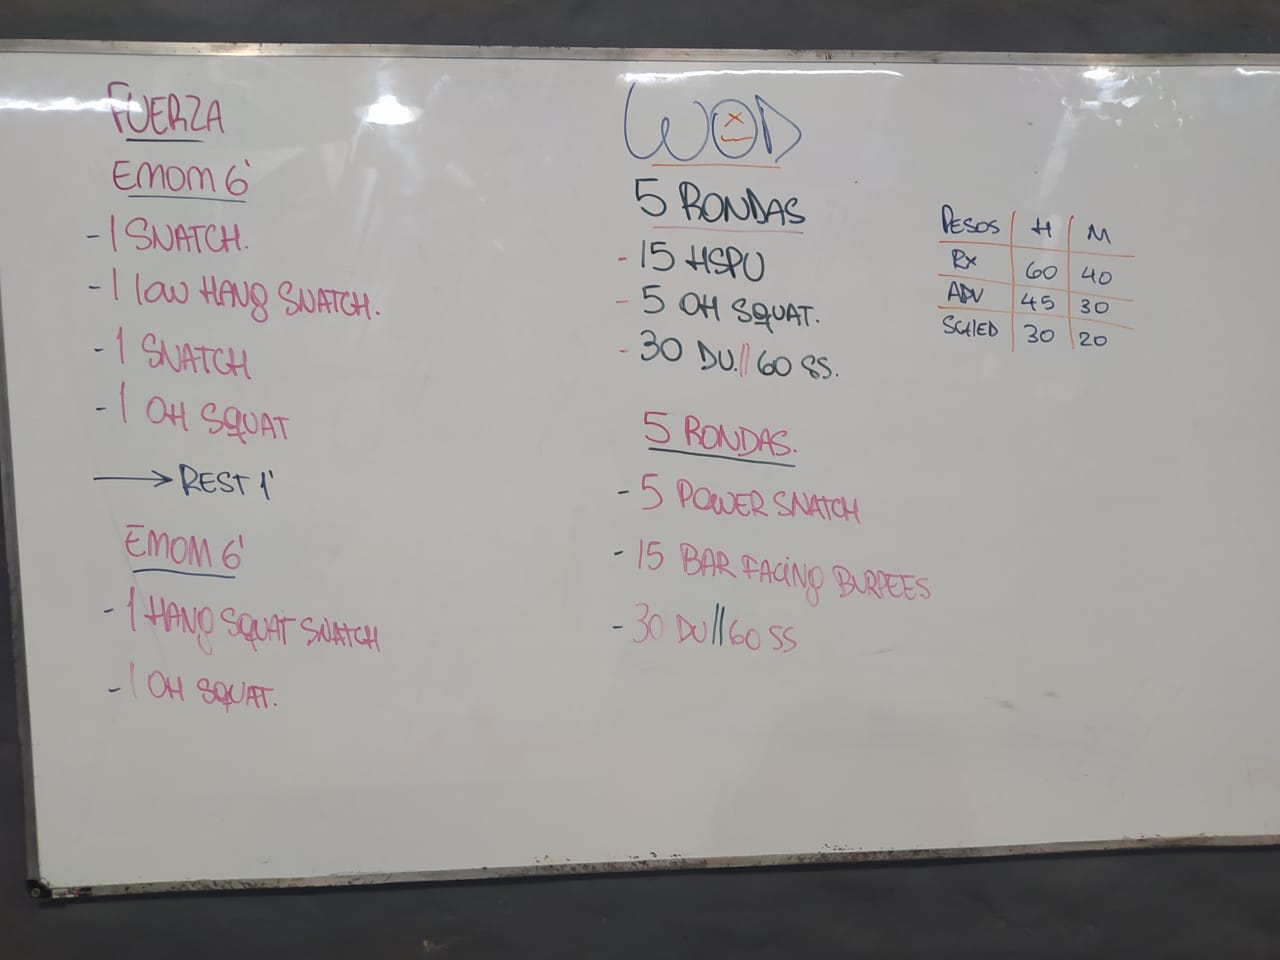 FUERZA
EMOM 6'
- 1 SNATCH.
- 1 low HANG SNATCH.
- 1 SNATCH
- 1 OH SQUAT
→ REST 1'
EMOM 6'
- 1 HANG SQUAT SNATCH
- 1 OH SQUAT.
WOD
5 RONDAS
- 15 HSPU
- 5 OH SQUAT.
- 30 DU.//60 SS.
5 RONDAS.
- 5 POWER SNATCH
- 15 BAR FACING BURPEES
- 30 DU//60 SS
PESOS H M
Rx 60 40
ADV 45 30
SCLED 30 20